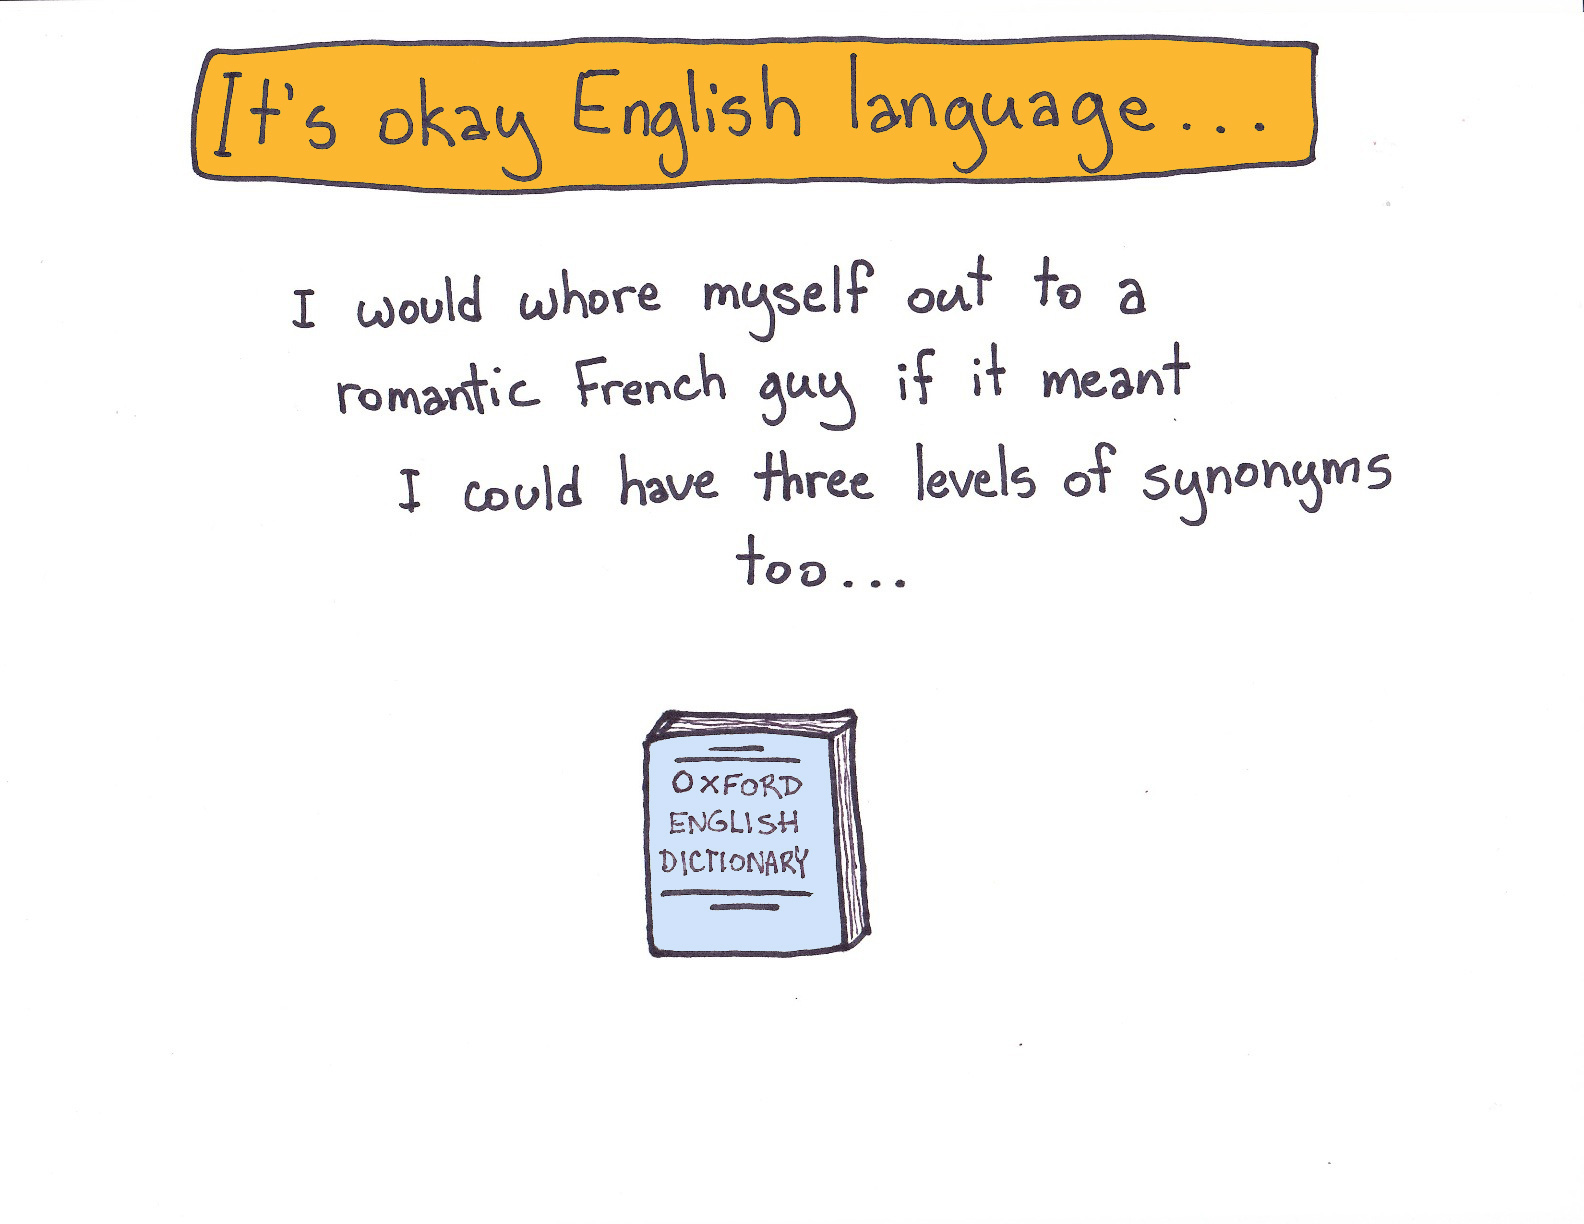 It's okay English language...
I would whore myself out to a
romantic French guy if it meant
I could have three levels of synonyms
too...
OXFORD
ENGLISH
DICTIONARY